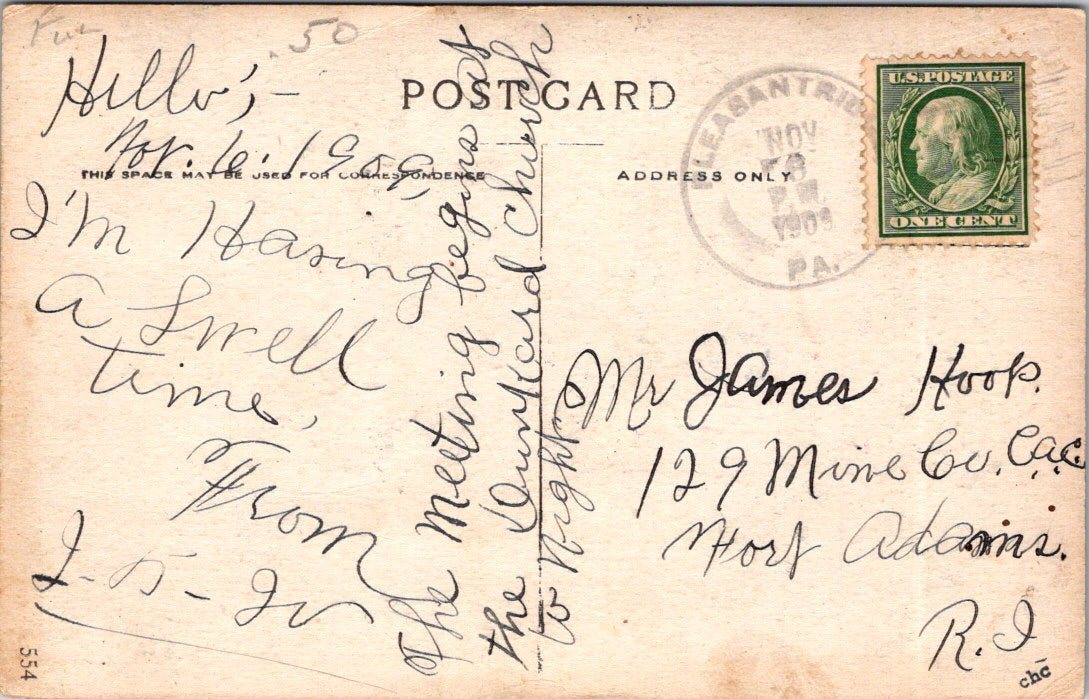 .50
POST CARD
THIS SPACE MAY BE USED FOR CORRESPONDENCE
ADDRESS ONLY
Hello, –
Nov. 6. 1909,
I'm Having
A Swell
time,
From
The Meeting begins at
the Dunkard Church
to Night
PLEASANTRID
NOV
8
P.M
1909
PA.
U.S. POSTAGE
ONE CENT
Mr James Hoop.
129 Mine Co. C.A.C.
Fort Adams.
R.I
554
chc